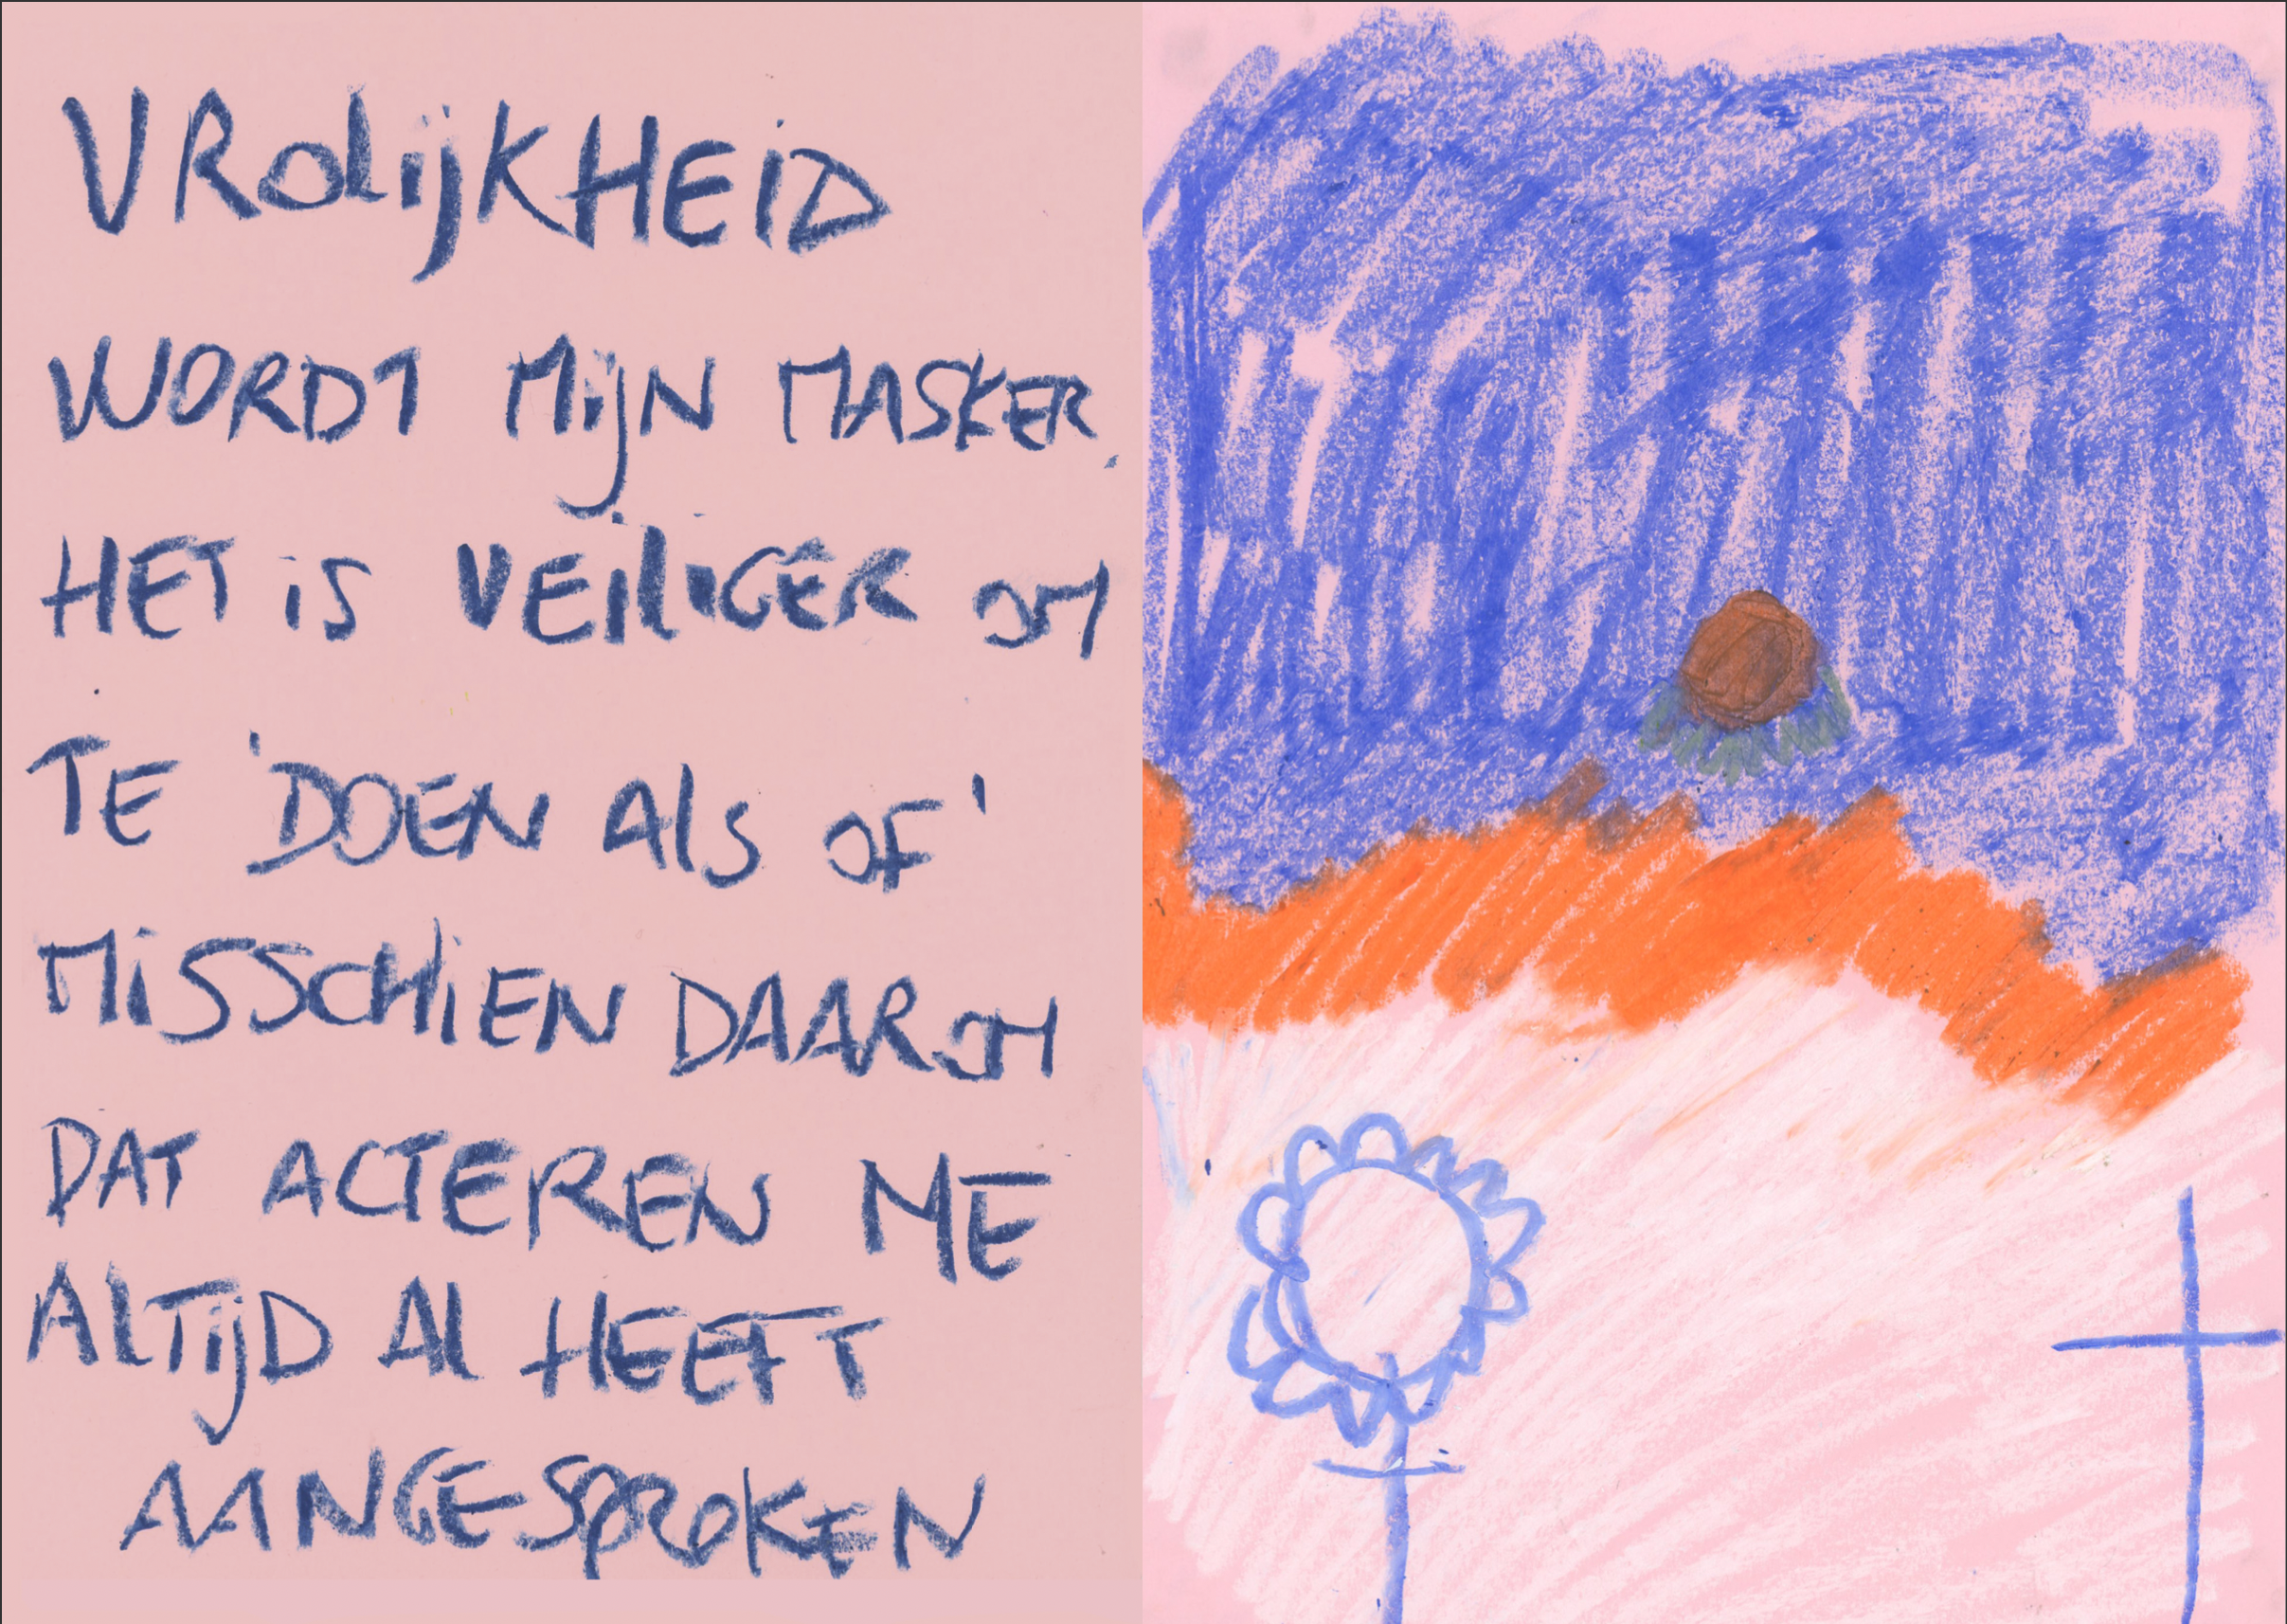 VROLIJKHEID
WORDT MIJN MASKER.
HET IS VEILIGER OM
TE 'DOEN ALS OF'
MISSCHIEN DAAROM
DAT ACTEREN ME
ALTIJD AL HEEFT
AANGESPROKEN